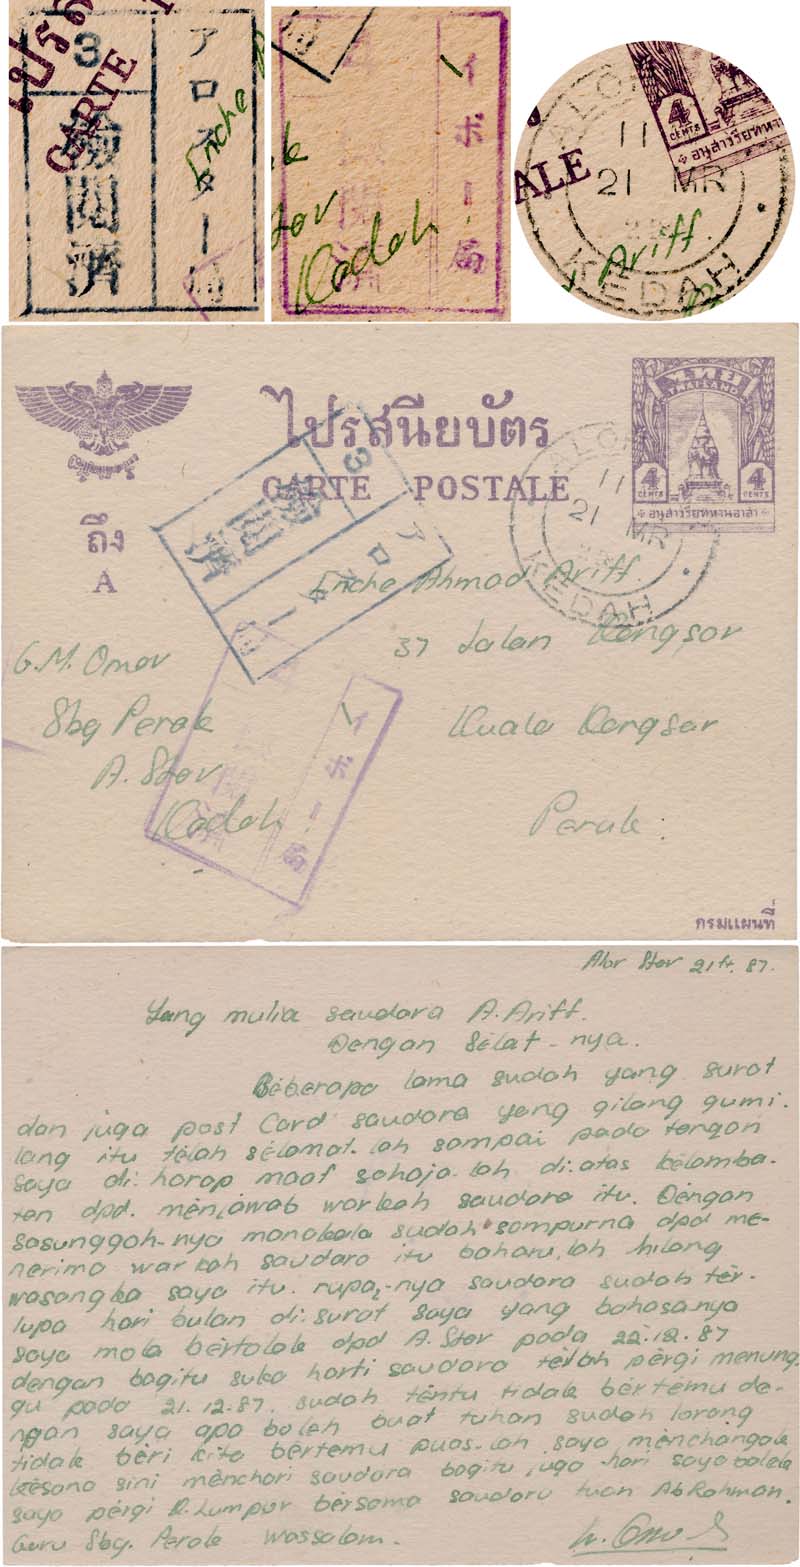 ไปรส
CARTE
3
検閲済
アロスター局
Enche
イボー局
検閲済
Kedah
ALOR
4
CENTS
อนุสาวรีย์ทหาน
ALE
11
21 MR
Ariff.
KEDAH
ไทย
THAILAND
ไปรสนียบัตร
CARTE POSTALE
4
CENTS
4
CENTS
อนุสาวรีย์ทหานอาสา
ถึง
A
3
検閲済
アロスター局
ALOR
11
21 MR
KEDAH
Enche Ahmad Ariff.
37 Jalan Kangsar
Kuala Kangsar
Perak.
G.M. Omar
Sbg Perak
A. Star
Kedah
イボー局
検閲済
กรมแผนที่
Alor Star 21 87.
Yang mulia saudara A. Ariff.
Dengan Selat-nya.
Beberapa lama sudah yang surat
dan juga post Card saudara yang gilang gumi.
lang itu tělah sělamat.lah sampai pada tangan
saya di.harap maaf sahaja.lah di.atas kělamba-
tan dpd. měnjawab warkah saudara itu. Děngan
sasunggoh-nya manakala sudah sampurna dpd me-
nerima warkah saudara itu baharu.lah hilang
wasangka saya itu. rupa2-nya saudara sudah těr-
lupa hari bulan di.surat saya yang bahasanya
saya mola běrtolak dpd A. Star pada 22.12.87
dengan bagitu suka harti saudara tělah pěrgi menung-
gu pada 21.12.87. sudah těntu tidak běrtemu de-
ngan saya apa boleh buat tuhan sudah larang
tidak běri kita běrtemu puas-lah saya měnchangak
kěsana sini měnchari saudara bagitu juga hari saya balek
saya pěrgi K. Lumpur běrsama saudara tuan Ab Rahman.
Guru Sbg. Perak wassalam.